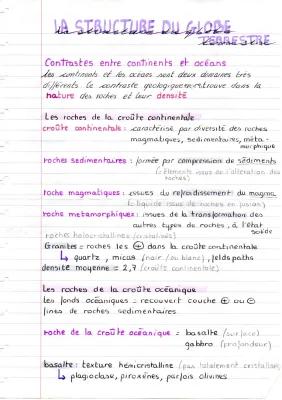 LA STRUCTURE DU GLOBE
TERRESTRE
Contrastes entre continents et océans
Les continents et les océans sont deux domaines très
différents. Le contraste géologique retrouve dans la
nature des roches et leur densité
Les roches de la croûte continentale
croûte continentale : caractérisé par diversité des roches
magmatiques, sedimentaires, méta-
morphique
roches sedimentaires : formée par compression de sédiments
(= Elements issus de l'altération des
roches)
roches magmatiques : issues du refroidissement du magma
(= liquide issue de roches en fusion)
roche metamorphique : issues de la transformation des
autres types de roches, à l'état
solide
roches holocristallines (cristallisés)
Granites = roches les ⊕ dans la croûte continentale
↳ quartz, micas (noir /ou blanc), feldspaths
densité moyenne = 2,7 (croûte continentale)
Les roches de la croûte océanique
Les fonds océaniques = recouvert couche ⊕ ou ⊖
fines de roches sedimentaires
roche de la croûte océanique = basalte (surface)
gabbro (profondeur)
basalte : texture hémicristalline (pas totalement cristallisée)
↳ plagioclase, piroxènes, parfois olivines